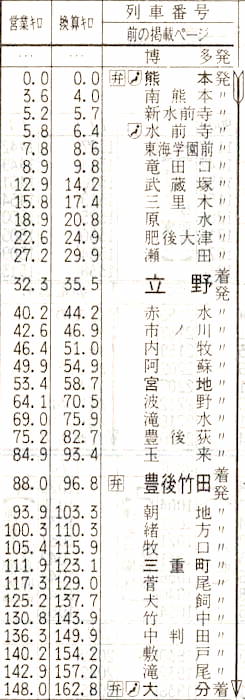 営業キロ 換算キロ 列車番号
前の掲載ページ
… … 博多発
0.0 0.0 弁 熊本発
3.6 4.0 南熊本〃
5.2 5.7 新水前寺〃
5.8 6.4 水前寺〃
7.8 8.6 東海学園前〃
8.9 9.8 竜田口〃
12.9 14.2 武蔵塚〃
15.8 17.4 三里木〃
18.9 20.8 原水〃
22.6 24.9 肥後大津〃
27.2 29.9 瀬田〃
32.3 35.5 立野着発
40.2 44.2 赤水〃
42.6 46.9 市ノ川〃
46.4 51.0 内牧〃
49.9 54.9 阿蘇〃
53.4 58.7 宮地〃
64.1 70.5 波野〃
69.0 75.9 滝水〃
75.2 82.7 豊後荻〃
84.9 93.4 玉来〃
88.0 96.8 弁 豊後竹田着発
93.9 103.3 朝地〃
100.3 110.3 緒方〃
105.4 115.9 牧口〃
111.9 123.1 三重町〃
117.3 129.0 菅尾〃
125.2 137.7 犬飼〃
130.8 143.9 竹中〃
136.3 149.9 中判田〃
140.2 154.2 敷戸〃
142.9 157.2 滝尾〃
148.0 162.8 弁 大分着